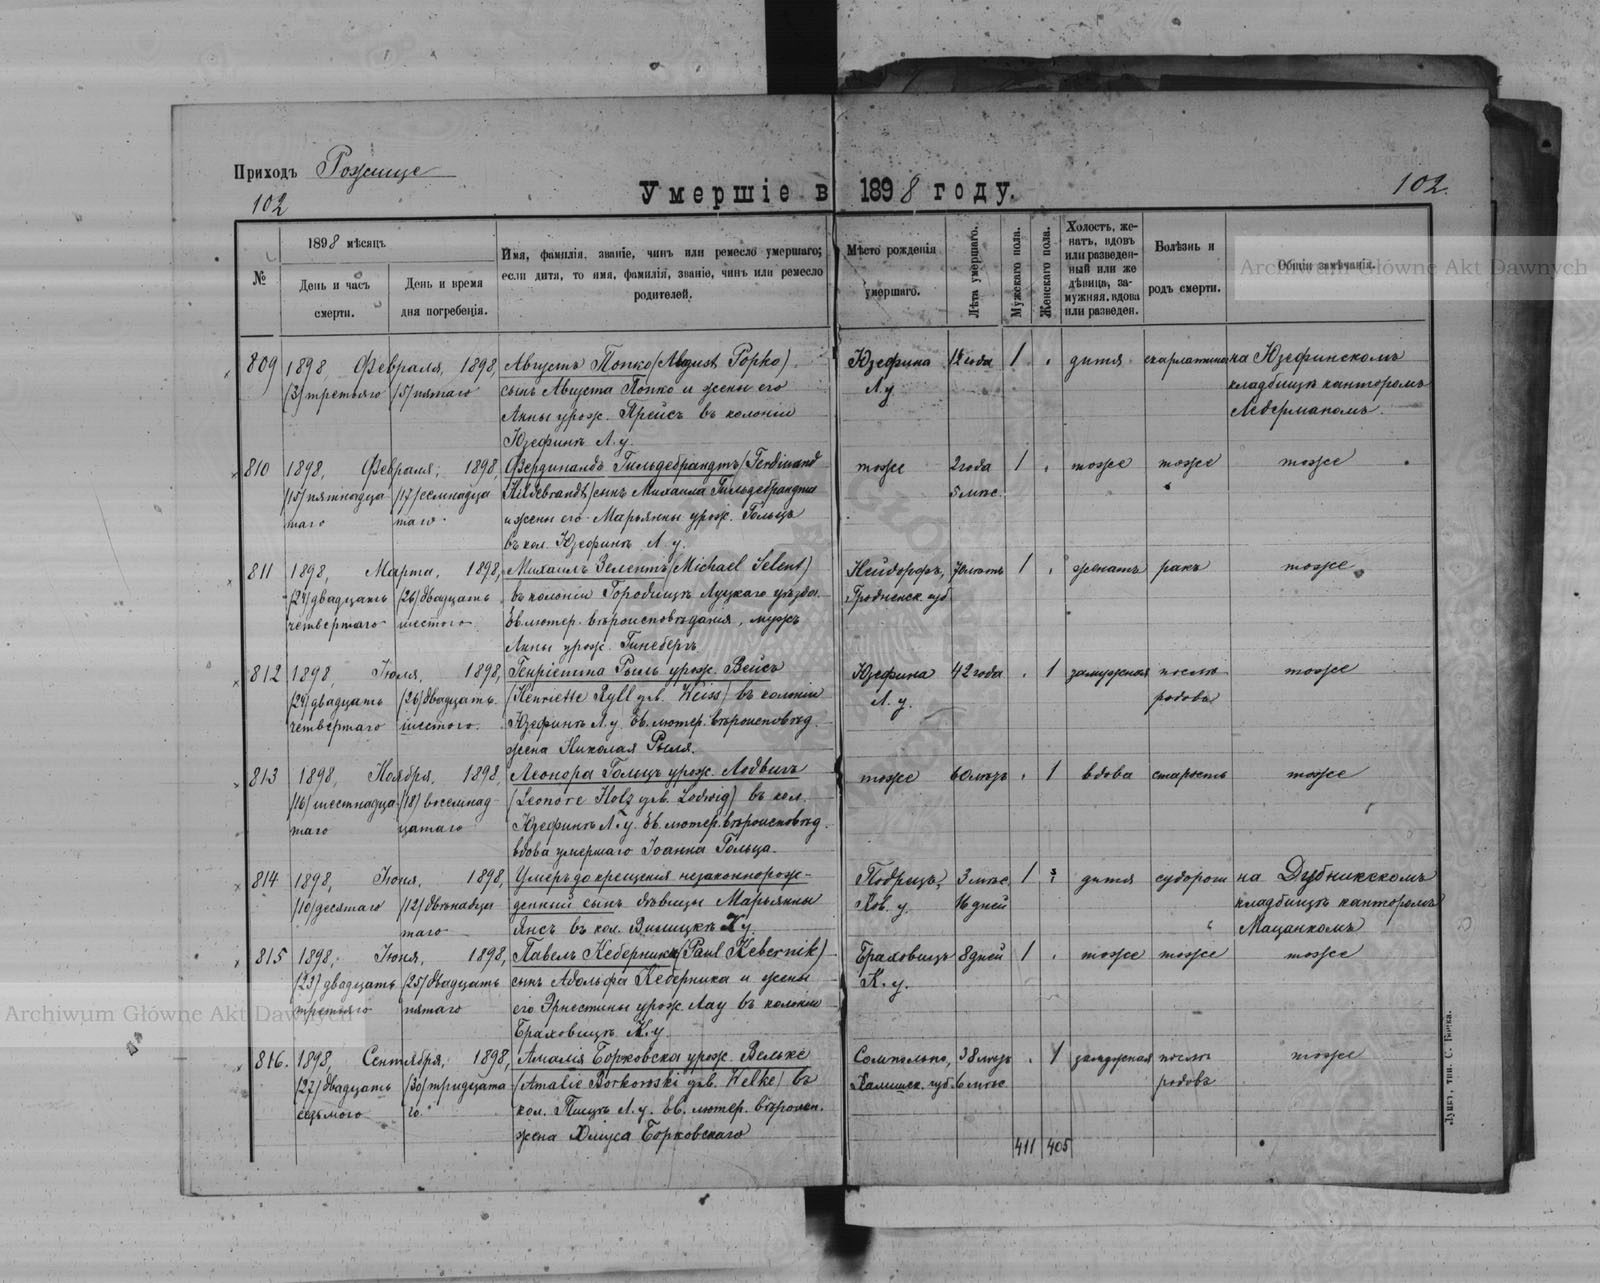 Приходъ Рожище
102
Умершіе в 1898 году.
102.
№
1898 мѣсяцъ
День и часъ смерти.
День и время дня погребенія.
Имя, фамилія, званіе, чинъ или ремесло умершаго;
если дитя, то имя, фамилія, званіе, чинъ или ремесло
родителей.
Мѣсто рожденія
умершаго.
Лѣта умершаго.
Мужскаго пола.
Женскаго пола.
Холостъ, же-
натъ, вдовъ
или разведен-
ный или же
дѣвица, за-
мужняя, вдова
или разведен.
Болѣзнь и
родъ смерти.
Общія замѣчанія.
Archiwum Główne Akt Dawnych
809 1898 Февраля, 1898, Августъ Попко (August Popko) Юзефина 1½ года 1 дитя скарлатина на Юзефинскомъ
(3) третьяго (5) пятаго сынъ Августа Попко и жены его Л.у. кладбищѣ канторомъ
Анны урож. Прейсъ въ колоніи Левермапомъ.
Юзефинѣ Л.у.
810 1898, Февраля, 1898, Фердинандъ Гильдебрандтъ (Ferdinand тоже 2 года 1 тоже тоже тоже
(15) пятнадца (17) семнадца Hildebrandt) сынъ Михаила Гильдебрандта 5 мѣс.
таго таго и жены его Марьянны урож. Гольцъ
въ кол. Юзефинѣ Л.у.
811 1898, Марта, 1898, Михаилъ Зелентъ (Michael Selent) Нейдорфъ, 70 лѣтъ 1 женатъ ракъ тоже
(24) двадцать (26) двадцать въ колоніи Городищѣ Луцкаго уѣзда. Гродненск. губ
четвертаго шестого Ев. лютер. вѣроисповѣданія, мужъ
Анны урож. Гинебергъ
812 1898, Іюля, 1898, Генріетта Рыль урож. Вейсъ Юзефина 42 года 1 замужная послѣ тоже
(24) двадцать (26) двадцать (Henriette Ryll geb. Weiss) въ колоніи Л.у. родовъ
четвертаго шестого. Юзефинѣ Л.у. Ев. лютер. вѣроисповѣд.
жена Николая Рыля.
813 1898, Ноября, 1898, Леонора Гольцъ урож. Лодвигъ тоже 60 лѣтъ 1 вдова старость тоже
(16) шестнадца (18) восемнад (Leonore Holz geb. Lodwig) въ кол.
таго цатаго Юзефинѣ Л.у. Ев. лютер. вѣроисповѣд.
вдова умершаго Іоанна Гольца.
814 1898, Іюня, 1898, Умеръ до крещенія незаконнорож- Подрицъ, 3 мѣс. 1 дитя судороги на Дубникскомъ
(10) десятаго (12) двѣнадца денный сынъ дѣвицы Марьянны Ков. у. 16 дней кладбищѣ канторомъ
таго Янсъ въ кол. Вилицкѣ К.у. Мацанкомъ
815 1898, Іюня, 1898, Павелъ Кеберникъ (Paul Kebernik) Браховицъ 8 дней 1 тоже тоже тоже
(23) двадцать (25) двадцать сынъ Адольфа Кеберника и жены К.у.
третьяго пятаго его Эрнестины урож. Лау въ колоніи
Браховицѣ К.у.
816. 1898, Сентября, 1898, Амалія Борковска урож. Вельке Сомпольно, 38 лѣтъ 1 замужная послѣ тоже
(27) двадцать (30) тридцата (Amalie Borkowski geb. Welke) въ Калишск. губ. 6 мѣс. родовъ
седьмого го. кол. Ев. лютер. вѣроисп.
жена Юлiуса Борковскаго
411 405
Archiwum Główne Akt Dawnych
Луцкъ, тип. С. Бонка.